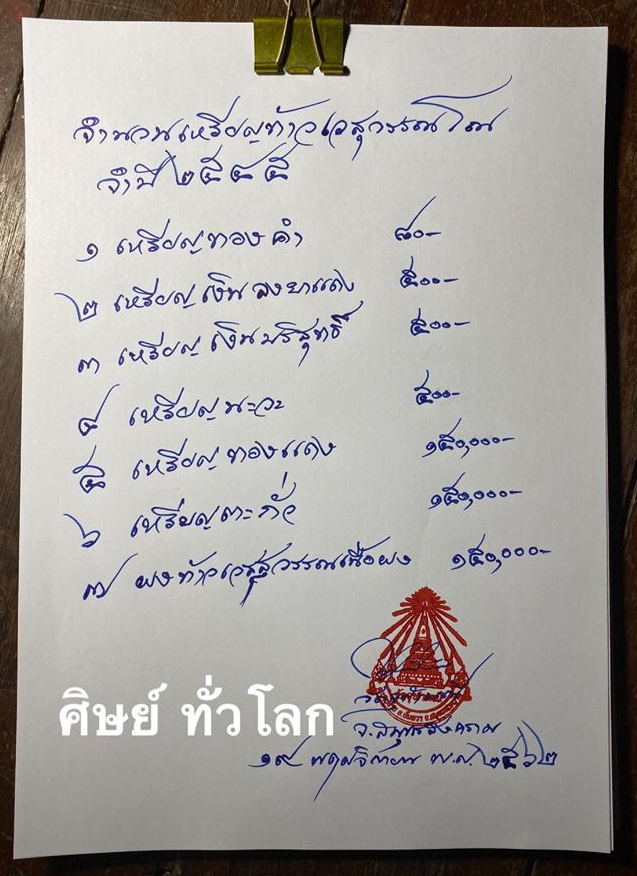 จำนวนเหรียญท้าวเวสุวรรณโณ
จำปี ๒๕๔๕
๑ เหรียญทองคำ ๘๐-
๒ เหรียญเงินลงยาแดง ๕๐๐-
๓ เหรียญเงินบริสุทธิ์ ๕๐๐-
๔ เหรียญนะวะ ๕๐๐-
๕ เหรียญทองแดง ๑๕๐,๐๐๐-
๖ เหรียญตะกั่ว ๑๕๐,๐๐๐-
๗ ผงท้าวเวสสุวรรณเนื้อผง ๑๕๐,๐๐๐-
ศิษย์ ทั่วโลก
จ.สมุทรสงคราม
๑๙ พฤศจิกายน พ.ศ. ๒๕๖๒